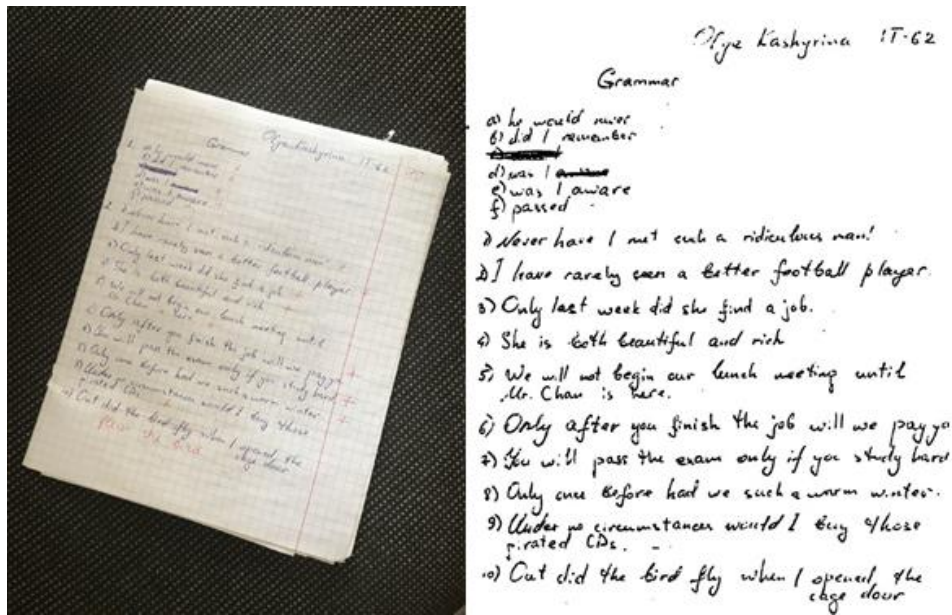 Olya Kashyrina IT-62
Grammar
a) he would never
b) did I remember
d) was I
e) was I aware
f) passed
1) Never have I met such a ridiculous man!
2) I have rarely seen a better football player.
3) Only last week did she find a job.
4) She is both beautiful and rich
5) We will not begin our lunch meeting until
Mr. Chan is here.
6) Only after you finish the job will we pay yo
7) You will pass the exam only if you study hard
8) Only once before had we such a warm winter.
9) Under no circumstances would I buy those
pirated CDs.
10) Out did the bird fly when I opened the
cage door